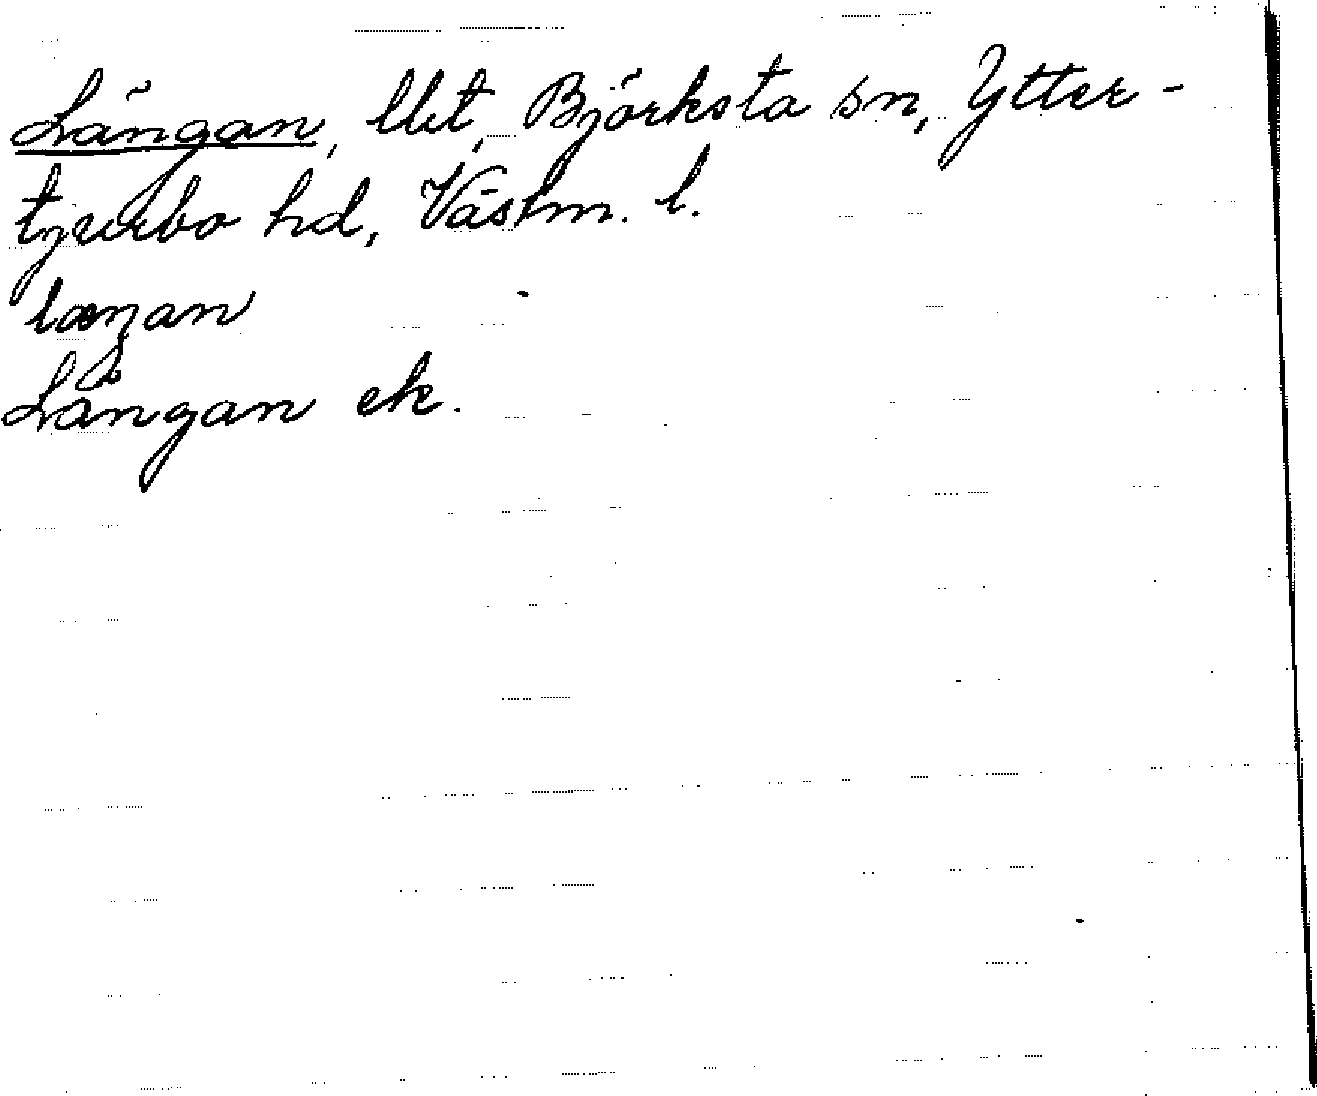 Längan, Björksta sn, Ytter-
tjurbo hd, Västm. l.
læŋan
Längan ek.